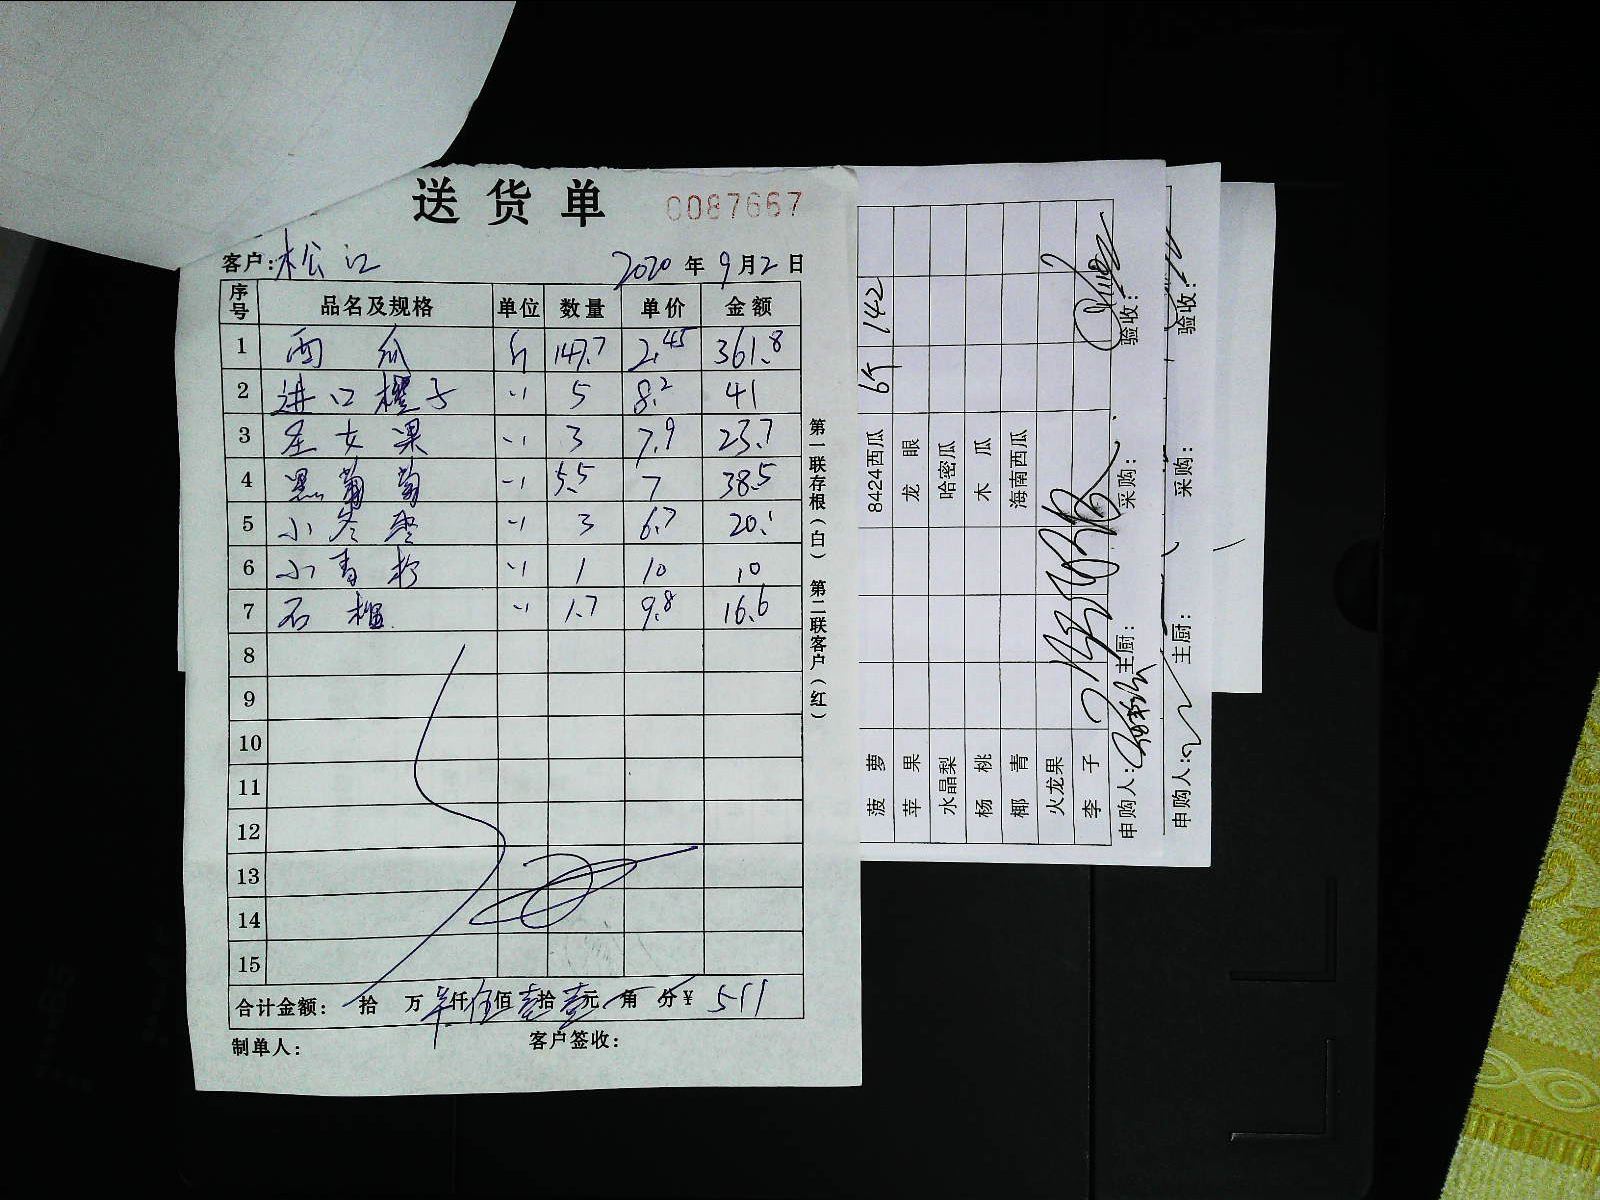 送货单 0087667
客户:松江 2020年9月2日
序号 品名及规格 单位 数量 单价 金额
1 西瓜 斤 147.7 2.45 361.8
2 进口橙子 〃 5 8.2 41
3 圣女果 〃 3 7.9 23.7
4 黑葡萄 〃 5.5 7 38.5
5 小冬枣 〃 3 6.7 20.1
6 小青柠 〃 1 10 10
7 石榴 〃 1.7 9.8 16.6
8
9
10
11
12
13
14
15
合计金额: 拾 万 仟伍佰壹拾壹元 角 分¥ 511
制单人: 客户签收:
第一联存根(白) 第二联客户(红)
菠萝 8424西瓜 65 142
苹果 龙眼
水晶梨 哈密瓜
杨桃 木瓜
椰青 海南西瓜
火龙果
李子
申购人: 主厨: 采购: 验收:
申购人: 主厨: 采购: 验收: